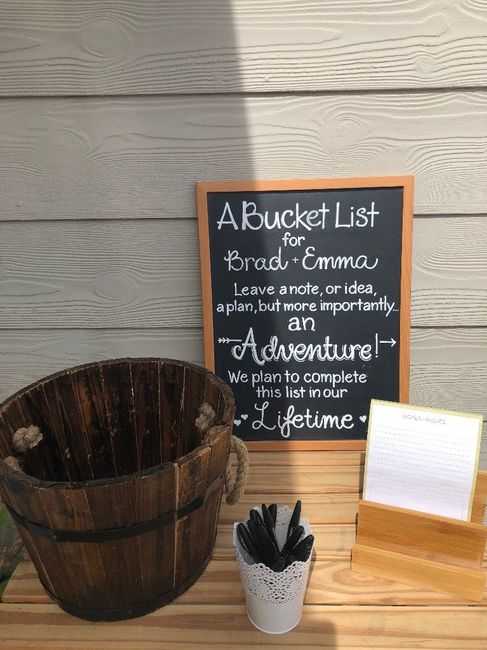 A Bucket List
for
Brad + Emma
Leave a note, or idea,
a plan, but more importantly...
an
Adventure!
We plan to complete
this list in our
Lifetime